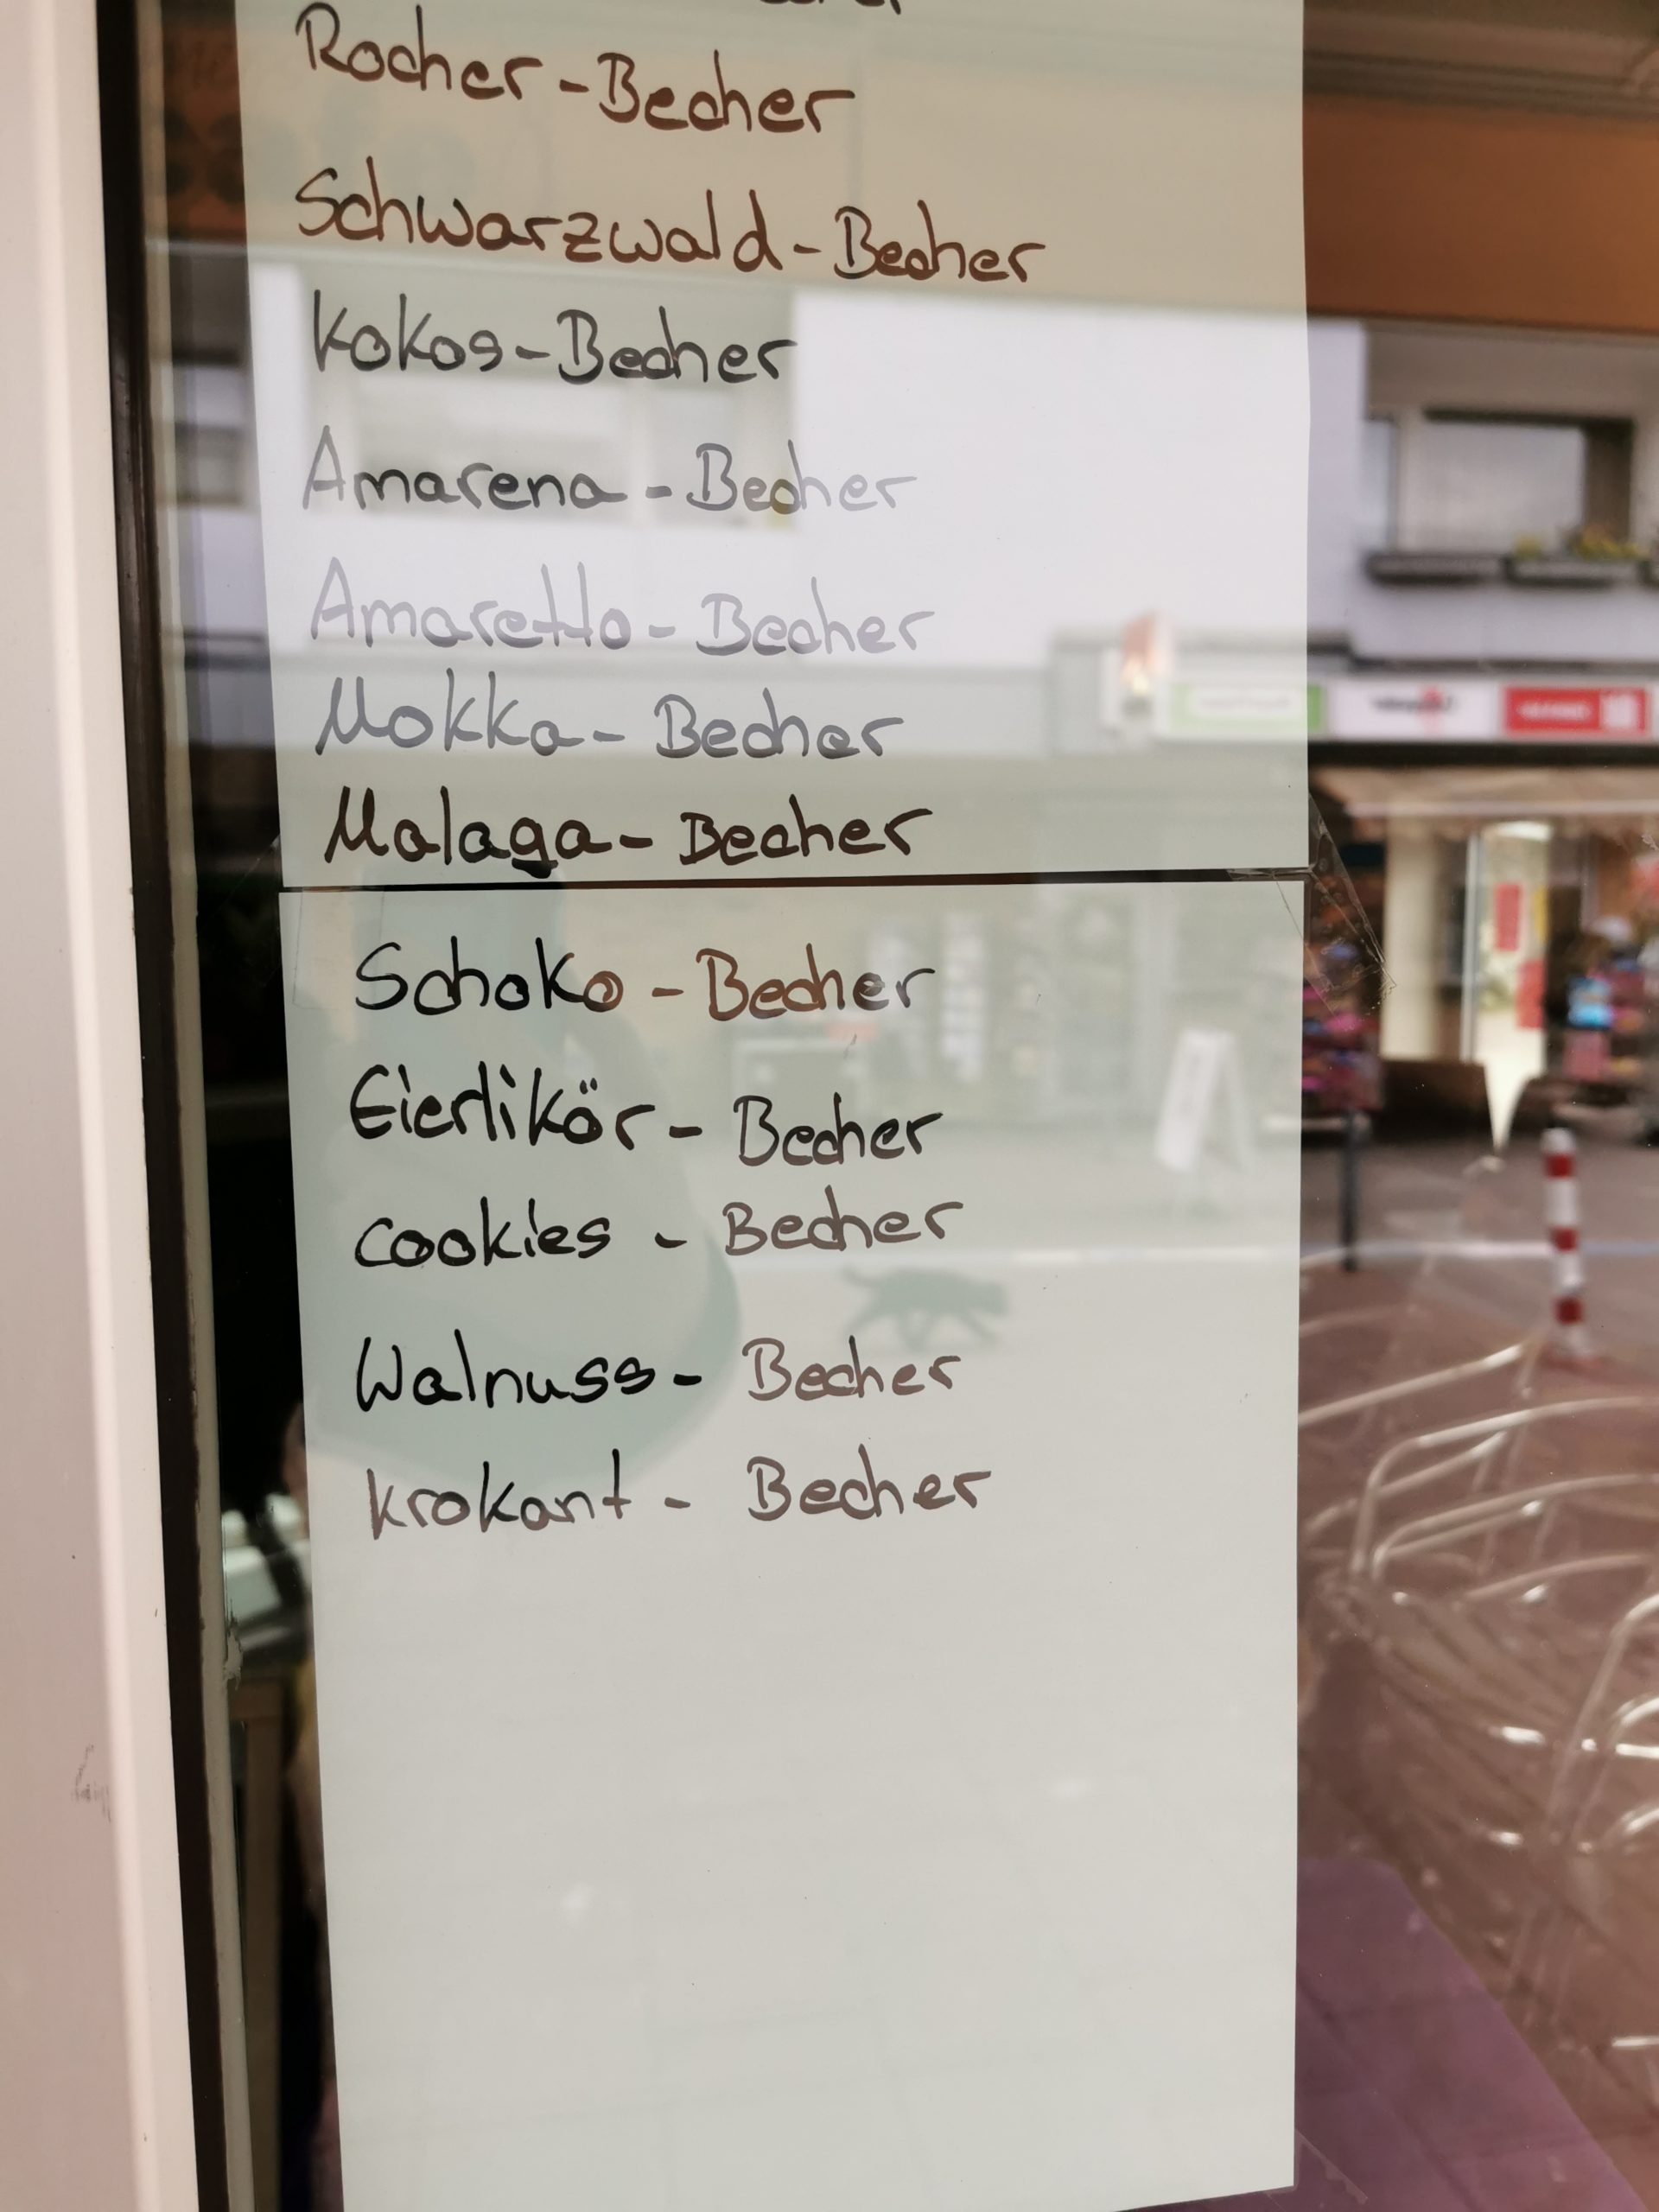 Rocher-Becher
Schwarzwald-Becher
Kokos-Becher
Amarena-Becher
Amaretto-Becher
Mokka-Becher
Malaga-Becher
Schoko-Becher
Eierlikör-Becher
cookies-Becher
Walnuss-Becher
krokant-Becher